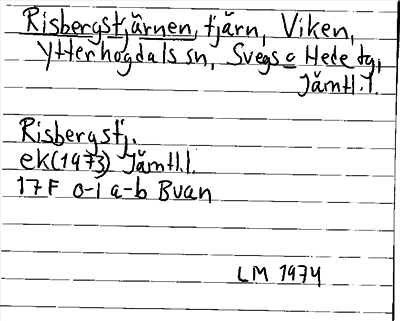 Risbergstjärnen, tjärn, Viken,
Ytterhogdals sn, Svegs o Hede tg,
Jämtl.l.
Risbergstj.
ek(1973) Jämtl.l.
17F 0-1 a-b Bvan
LM 1974